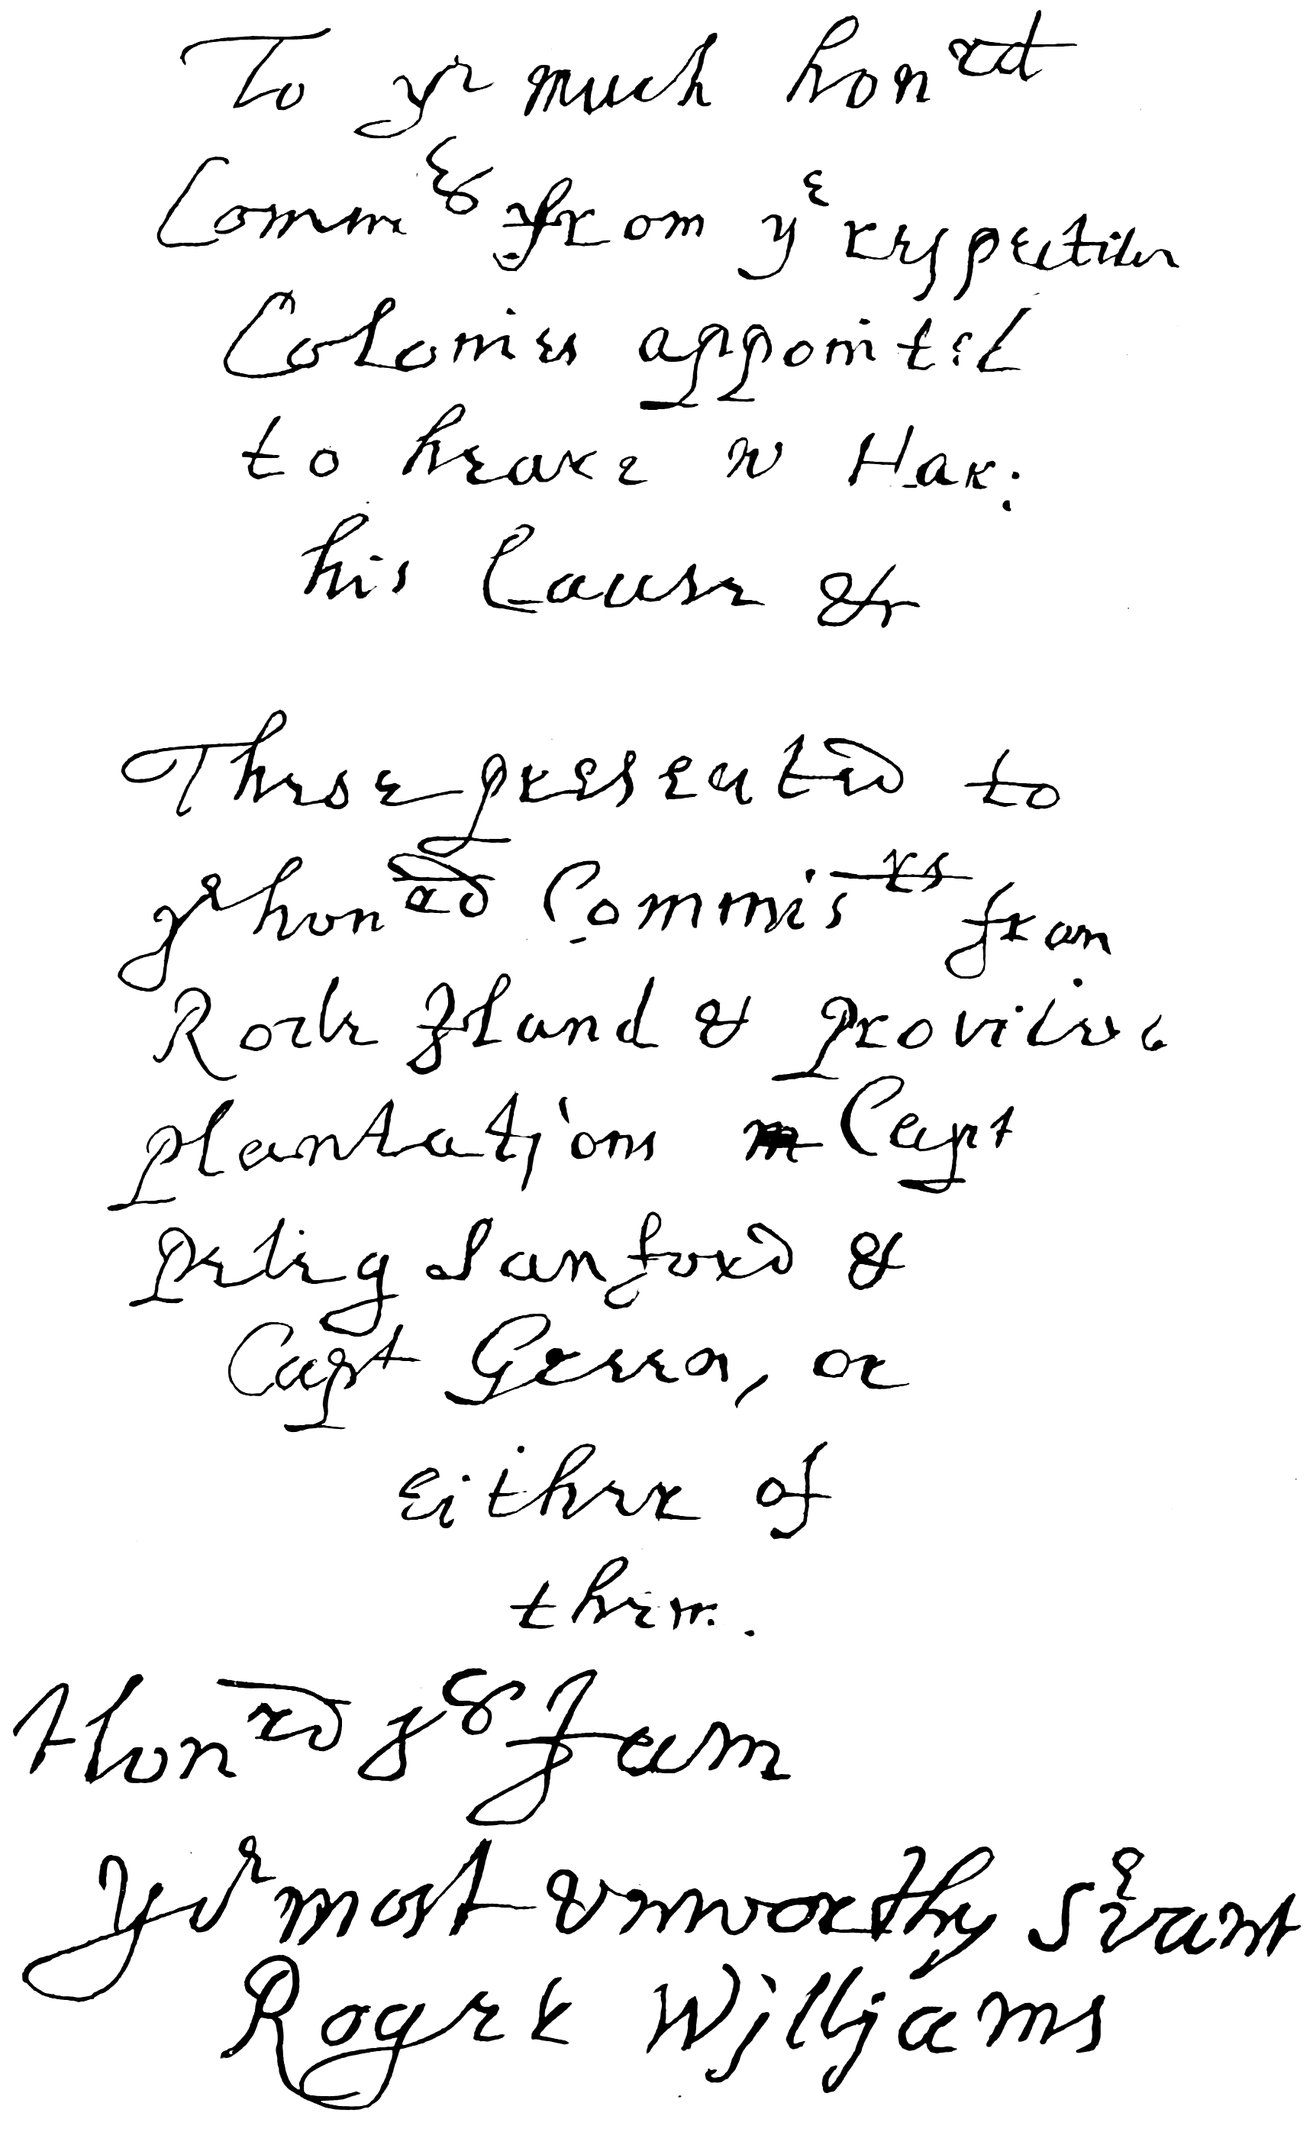 To yr much honrd
Commrs from ye respective
Colonies appointed
to heare W Har:
his Cause &c
These presented to
ye honrd Commisrs from
Rode Iland &
plantations Capt
Peleg Sanford &
Capt Green, or
either of
them.
Honrd Srs I am
Yor most unworthy Servant
Roger Williams